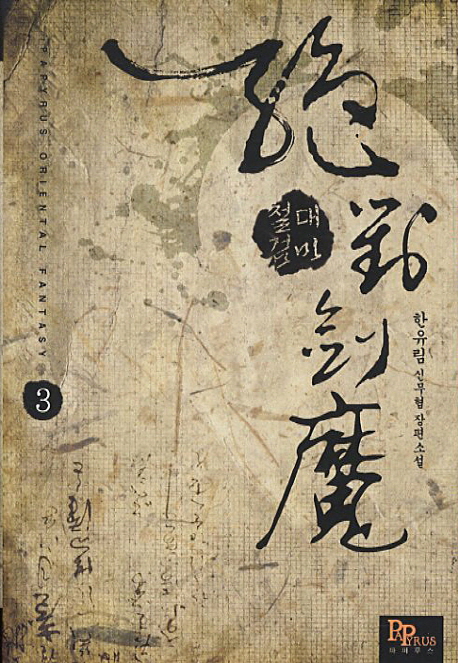 絶對劍魔
절대
검마
한유림 신무협 장편소설
PAPYRUS ORIENTAL FANTASY
3
PAPYRUS
파피루스